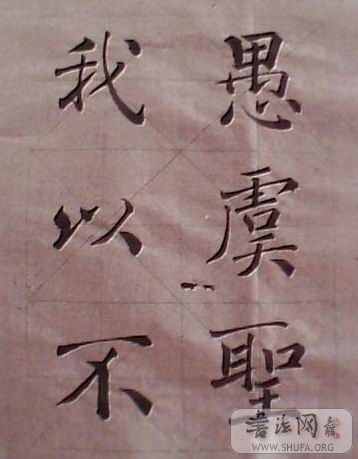 愚虞聖
我以不
書法网
WWW.SHUFA.ORG